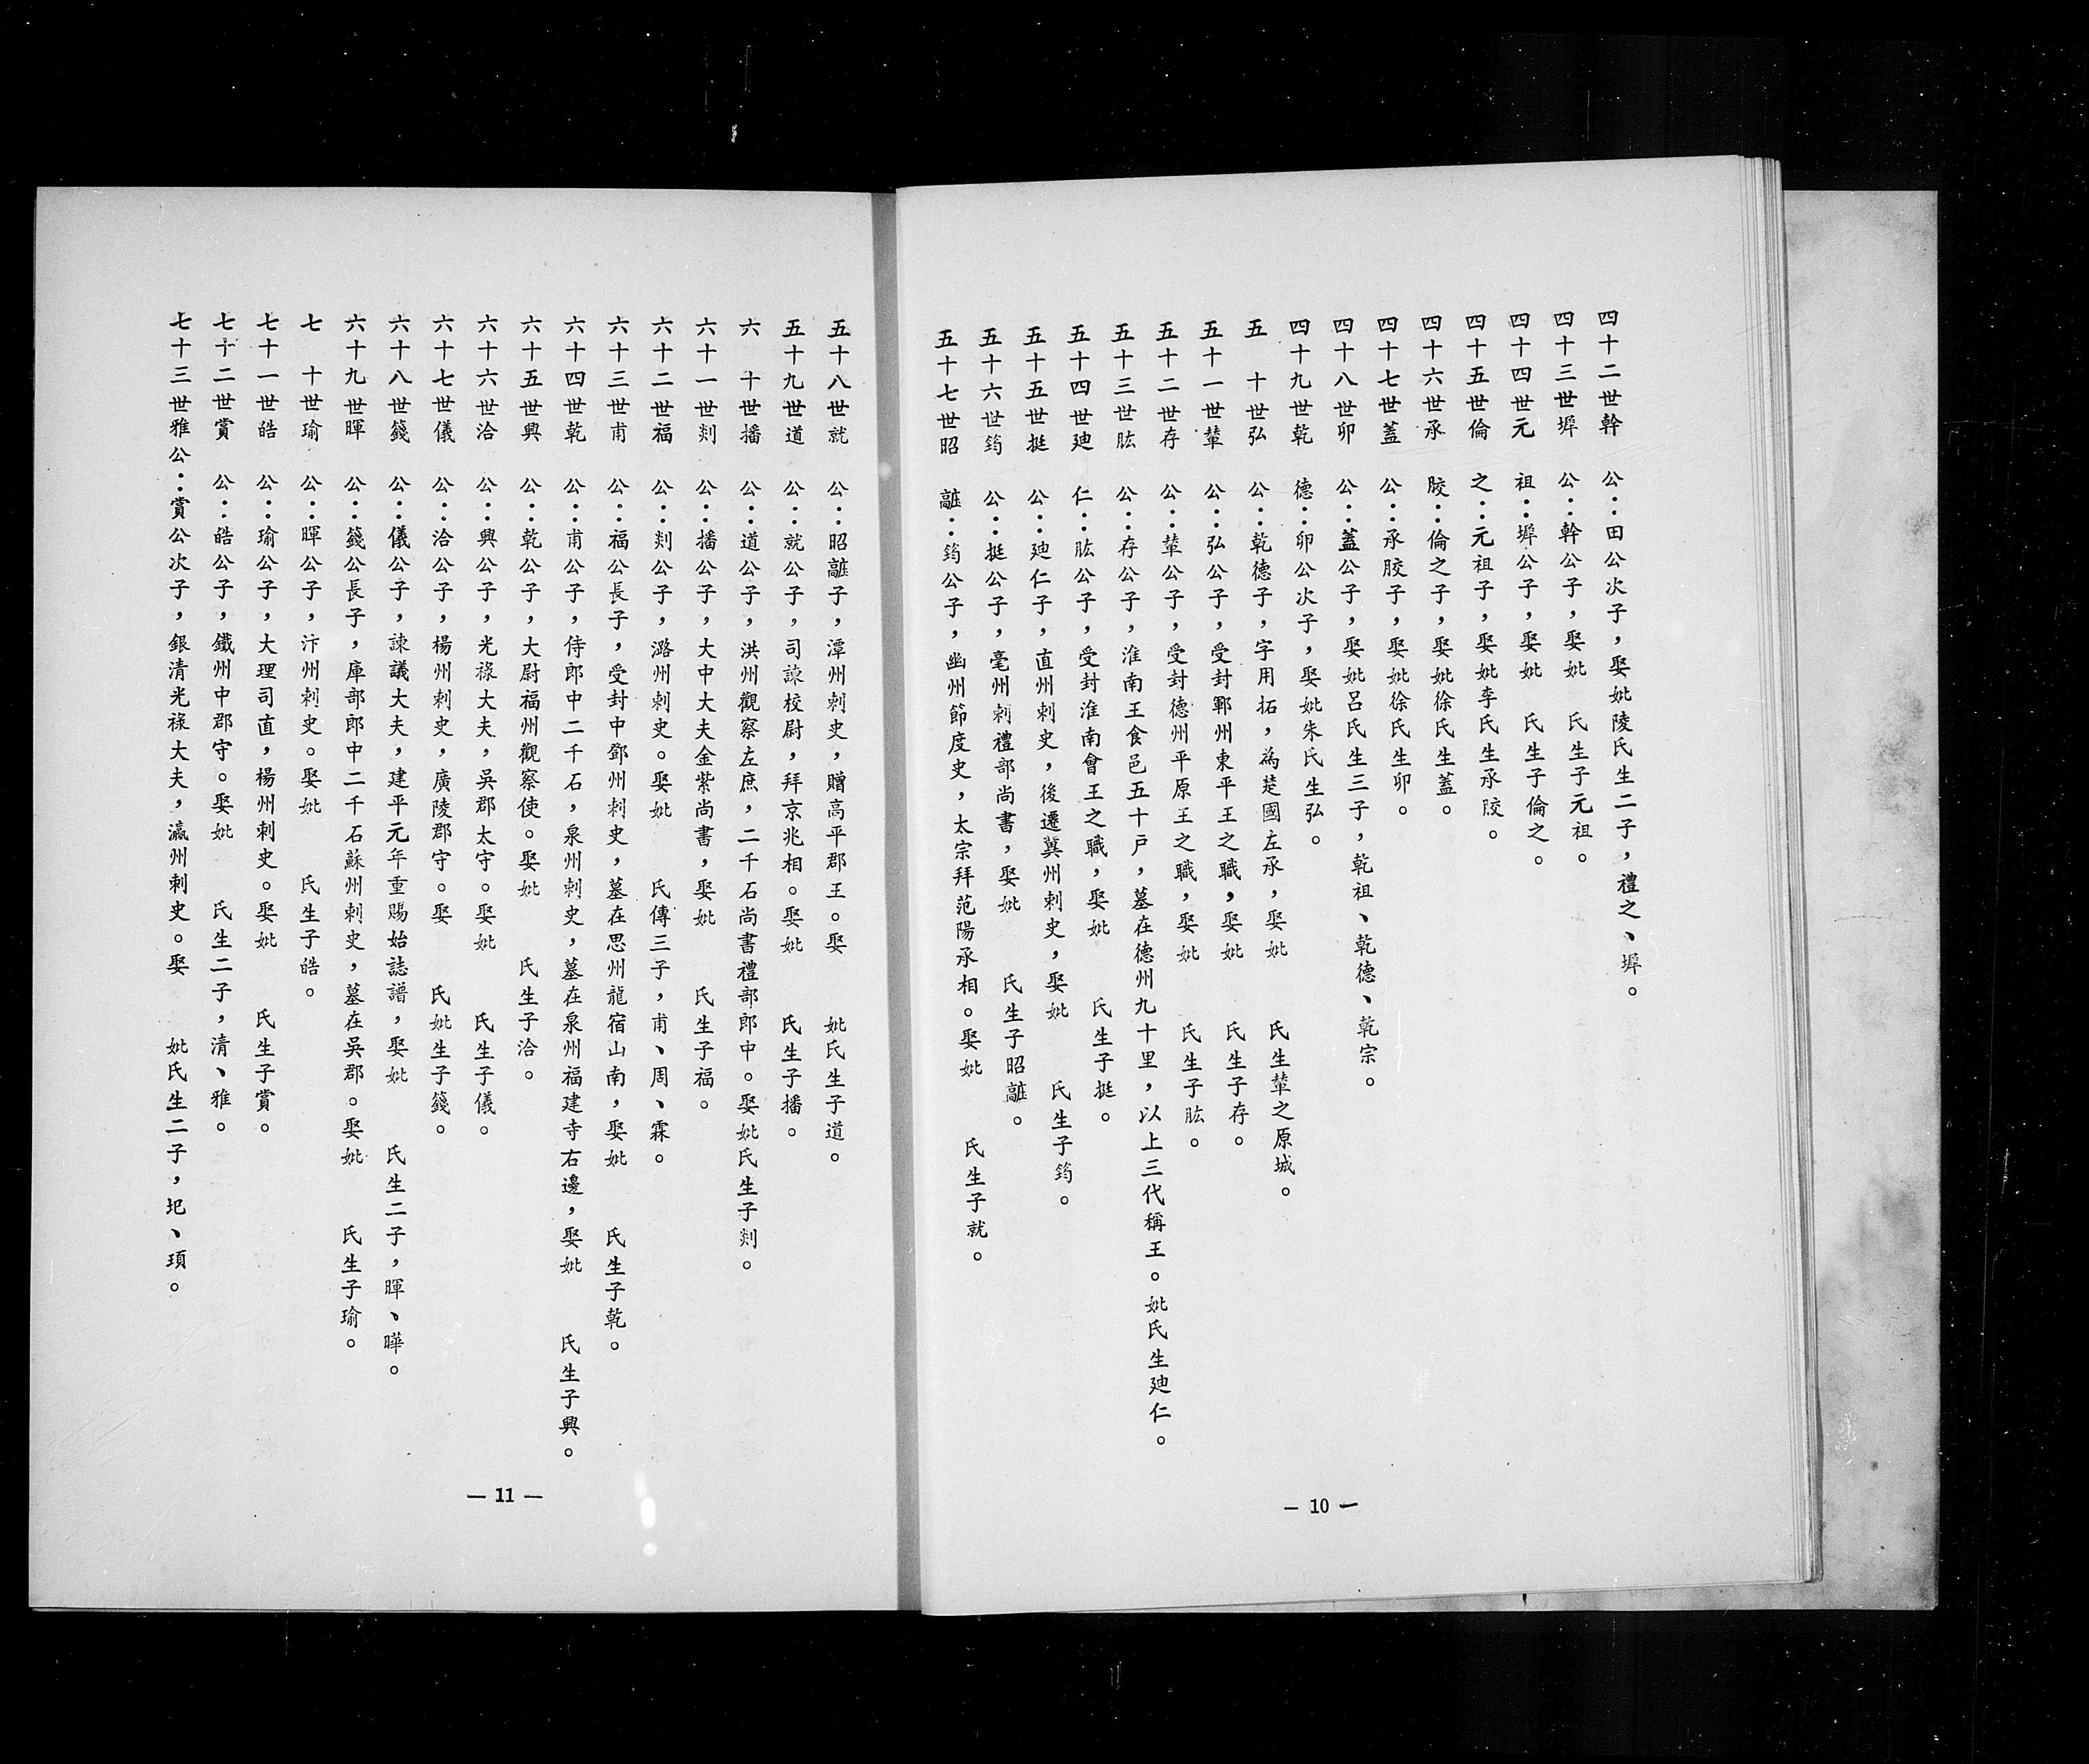 四十二世幹　公：田公次子，娶妣陵氏生二子，禮之、墀。
四十三世墀　公：幹公子，娶妣　氏生子元祖。
四十四世元　祖：墀公子，娶妣　氏生子倫之。
四十五世倫　之：元祖子，娶妣李氏生承胶。
四十六世承　胶：倫之子，娶妣徐氏生蓋。
四十七世蓋　公：承胶子，娶妣徐氏生卯。
四十八世卯　公：蓋公子，娶妣呂氏生三子，乾祖、乾德、乾宗。
四十九世乾　德：卯公次子，娶妣朱氏生弘。
五　十世弘　公：乾德子，字用拓，為楚國左承，娶妣　　氏生輦之原城。
五十一世輦　公：弘公子，受封鄆州東平王之職，娶妣　　氏生子存。
五十二世存　公：輦公子，受封德州平原王之職，娶妣　　氏生子肱。
五十三世肱　公：存公子，淮南王食邑五十戶，墓在德州九十里，以上三代稱王。妣氏生廸仁。
五十四世廸　仁：肱公子，受封淮南會王之職，娶妣　　氏生子挺。
五十五世挺　公：廸仁子，直州刺史，後遷冀州刺史，娶妣　　氏生子筠。
五十六世筠　公：挺公子，毫州刺禮部尚書，娶妣　　氏生子昭。
五十七世昭　：筠公子，幽州節度史，太宗拜范陽承相。娶妣　　氏生子就。
— 10 —
五十八世就　公：昭子，潭州刺史，贈高平郡王。娶　　妣氏生子道。
五十九世道　公：就公子，司諫校尉，拜京兆相。娶妣　　氏生子播。
六　十世播　公：道公子，洪州觀察左庶，二千石尚書禮部郎中。娶妣氏生子剡。
六十一世剡　公：播公子，大中大夫金紫尚書，娶妣　　氏生子福。
六十二世福　公：剡公子，潞州刺史。娶妣　　氏傳三子，甫、周、霖。
六十三世甫　公：福公長子，受封中鄧州刺史，墓在思州龍宿山南，娶妣　　氏生子乾。
六十四世乾　公：甫公子，侍郎中二千石，泉州刺史，墓在泉州福建寺右邊，娶妣　　氏生子興。
六十五世興　公：乾公子，大尉福州觀察使。娶妣　　氏生子洽。
六十六世洽　公：興公子，光祿大夫，吳郡太守。娶妣　　氏生子儀。
六十七世儀　公：洽公子，楊州刺史，廣陵郡守。娶　　氏妣生子籛。
六十八世籛　公：儀公子，諫議大夫，建平元年重賜始誌譜，娶妣　　氏生二子，暉、曄。
六十九世暉　公：籛公長子，庫部郎中二千石蘇州刺史，墓在吳郡。娶妣　　氏生子瑜。
七　十世瑜　公：暉公子，汴州刺史。娶妣　　氏生子皓。
七十一世皓　公：瑜公子，大理司直，楊州刺史。娶妣　　氏生子賞。
七十二世賞　公：皓公子，鐵州中郡守。娶妣　　氏生二子，清、雅。
七十三世雅公：賞公次子，銀清光祿大夫，瀛州刺史。娶　　妣氏生二子，圯、頊。
— 11 —